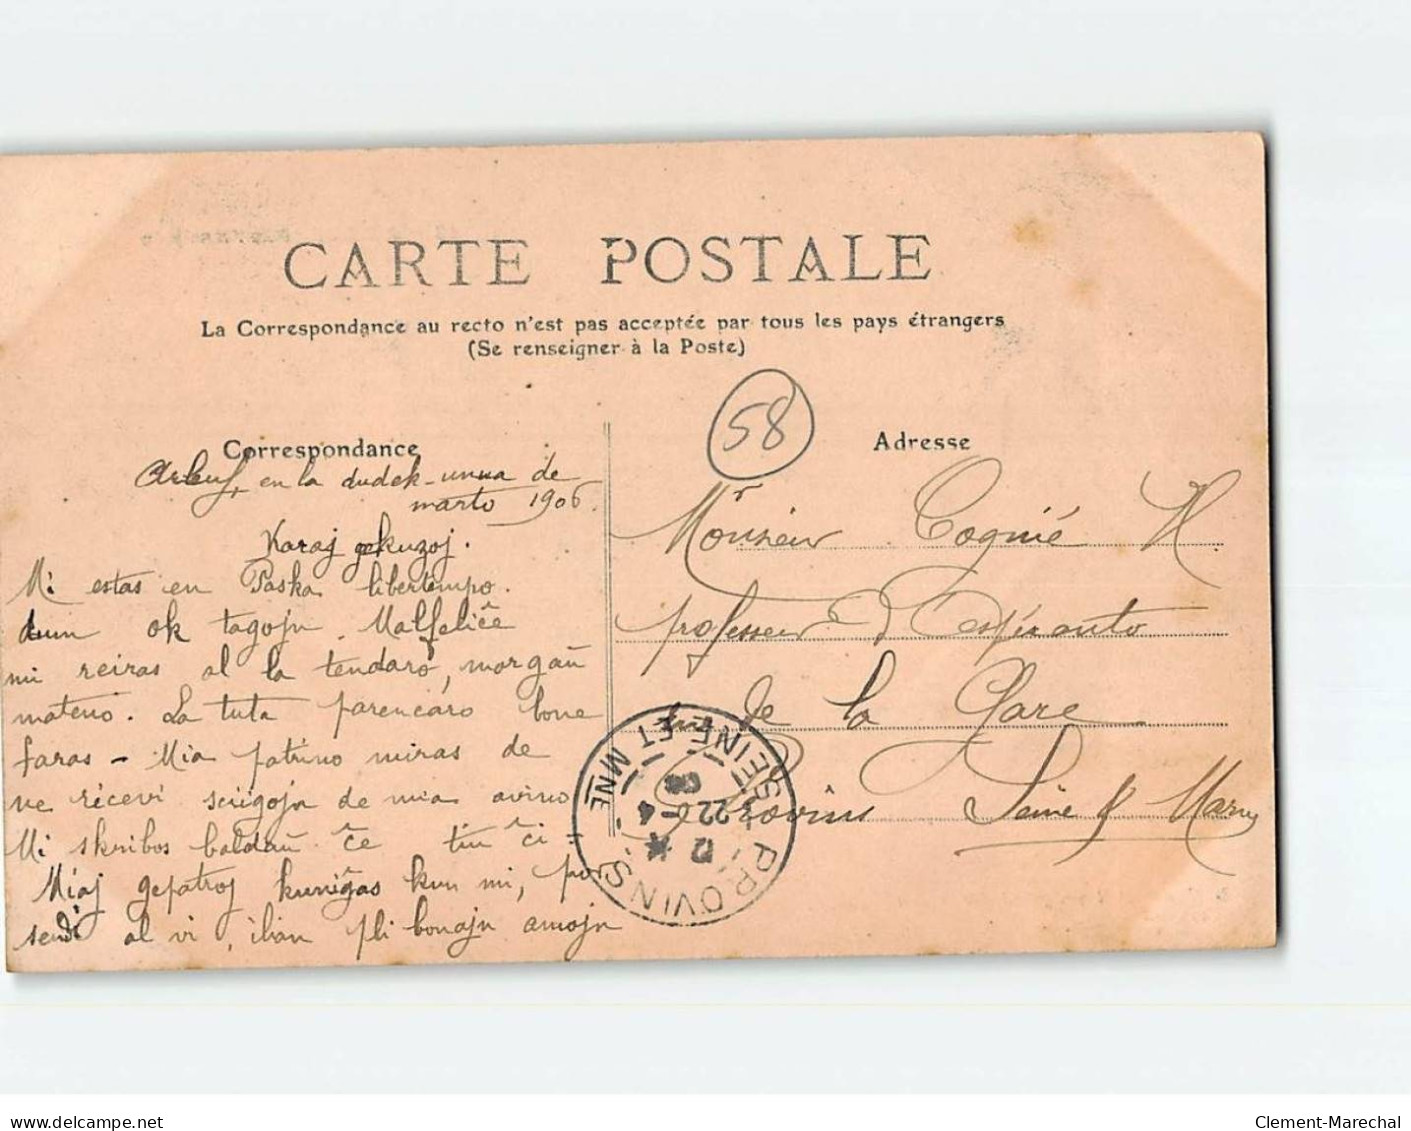 CARTE POSTALE
La Correspondance au recto n'est pas acceptée par tous les pays étrangers
(Se renseigner à la Poste)
58
Correspondance
Adresse
Arleuf, en la dudek-unua de
marto 1906.
Karaj gekuzoj.
Mi estas en Paska libertempo.
dum ok tagojn. Malfeliĉe
mi reiras al la tendaro, morgaŭ
mateno. La tuta parencaro bone
faras - Mia patrino miras de
ne ricevi sciigojn de mia avino
Mi skribos baldaŭ ĉe tiu ĉi
Miaj gepatroj kuniĝas kun mi, por
sendi al vi, ilian pli bonajn amojn
Monsieur Cognié H
professeur d'Espéranto
de la Gare
Provins Seine & Marne
PROVINS
SEINE ET MNE
22 - 4
Clement-Marechal
www.delcampe.net